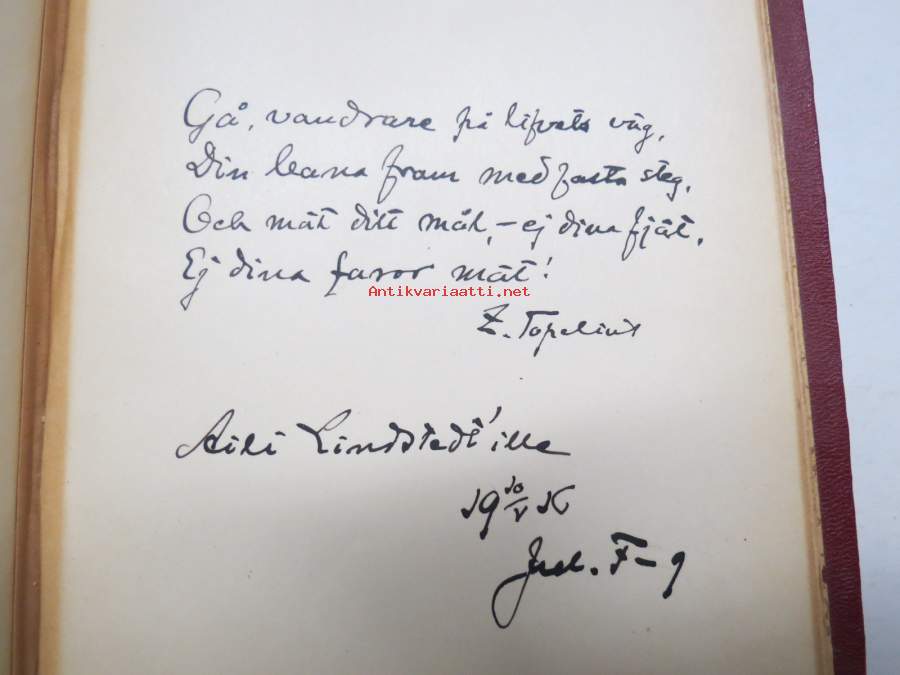 Gå, vandrare på lifvets väg,
Din bana fram med fasta steg,
Och mät ditt mål, – ej dina fjät,
Ej dina faror mät!
Antikvariaatti.net
Z. Topelius
Aili Lindstedt'ille
19 10/V 16
F–g